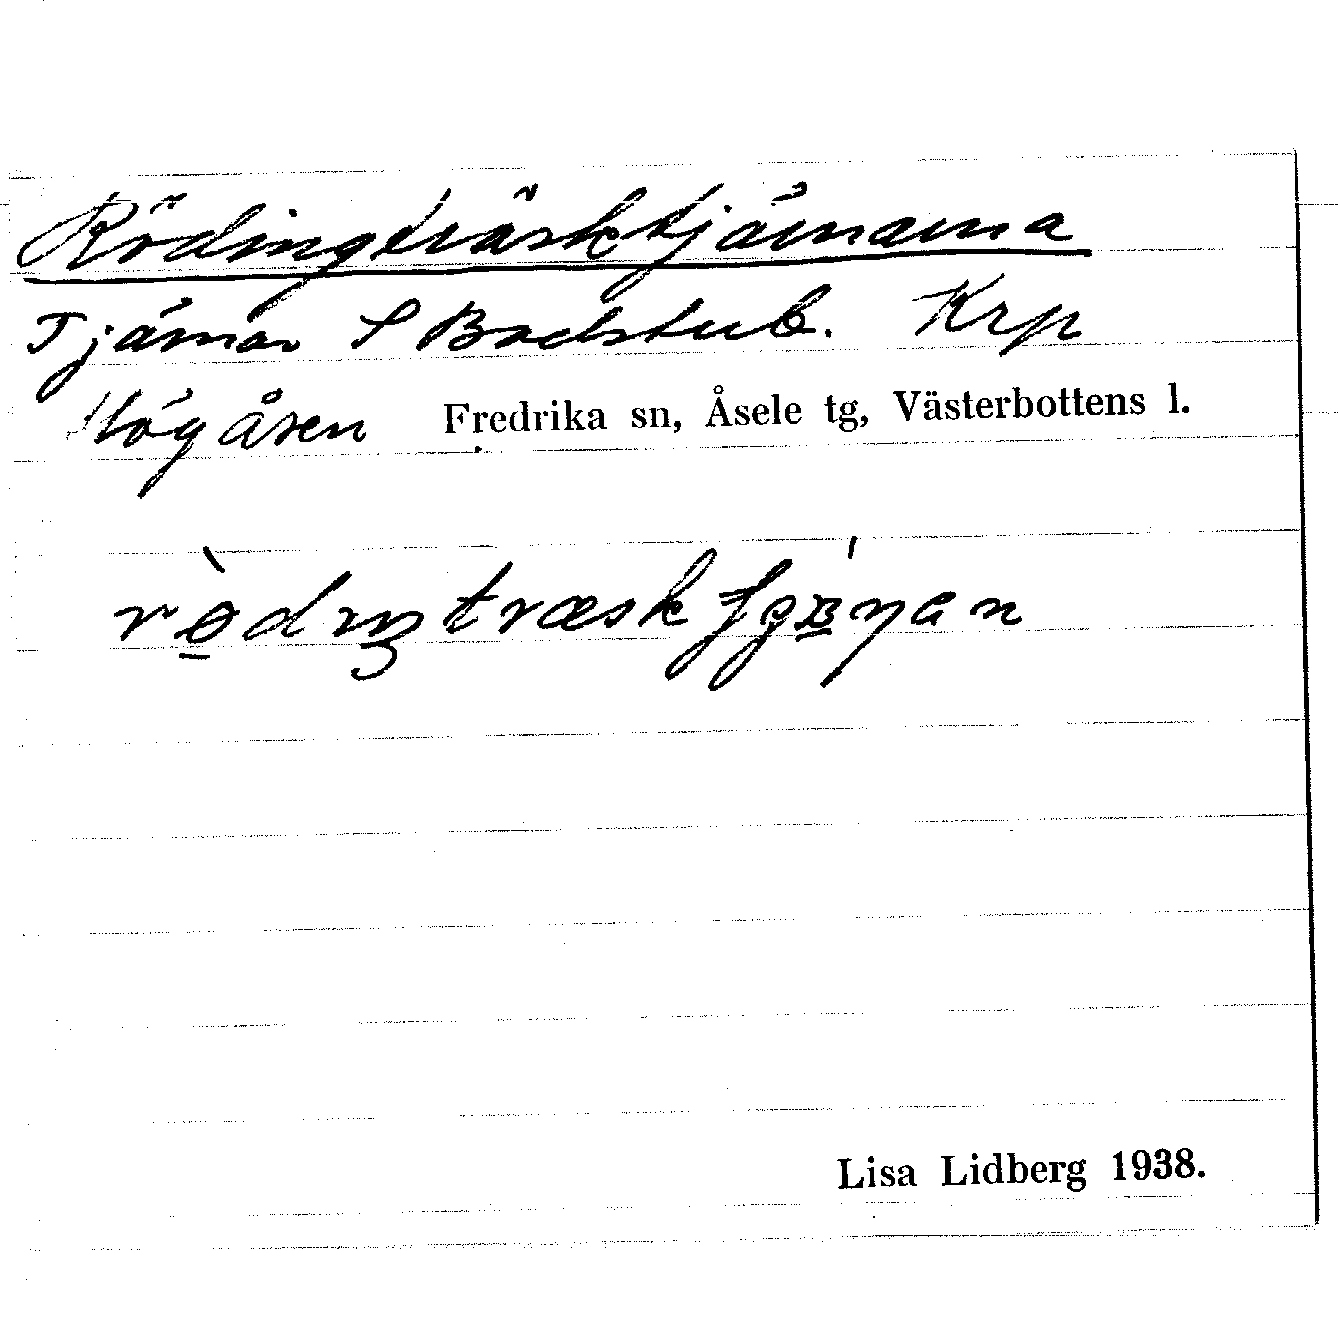 Rödingträsktjärnarna
Tjärnar S Badstub. Krp
Högåsen Fredrika sn, Åsele tg, Västerbottens l.
Lisa Lidberg 1938.